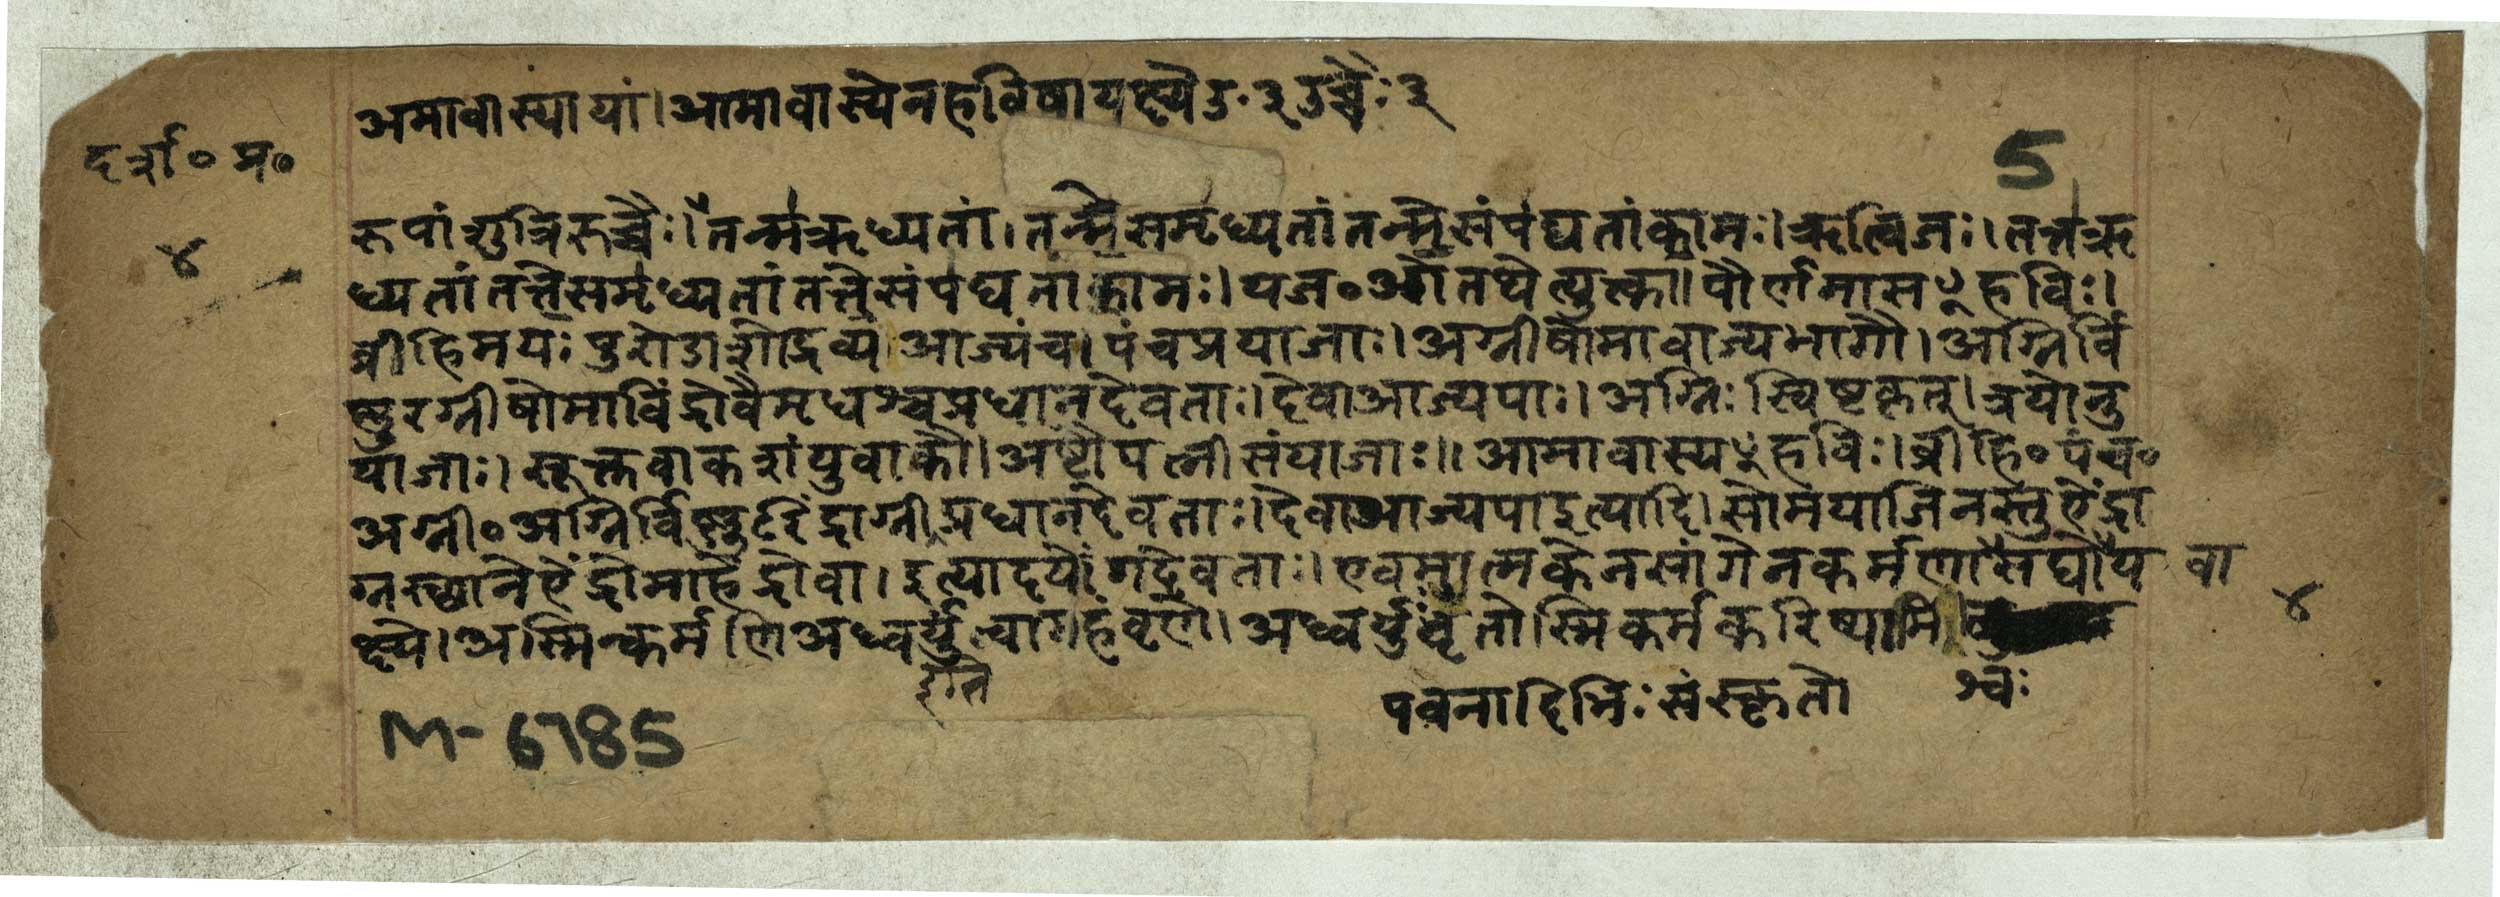 अमावास्यायां।आमावास्येनहविषायक्ष्यैउ.३उच्चैः३
दर्श०प्र०
5
रूपांशुत्रिरुच्चैः।तन्मऋध्यतां।तन्मेसमृध्यतांतन्मेसंपद्यतांकामः।ऋत्विजः।तत्तऋ
४
ध्यतांतत्तेसमृध्यतांतत्तेसंपद्यतांकामः।यज०ओंतथेत्युक्त्वा॥पौर्णमासꣳहविः।
व्रीहिमयःपुरोडाशोद्रव्य।आज्यंच।पंचप्रयाजाः।अग्नीषोमावाज्यभागौ।अग्निर्वि
ष्णुरग्नीषोमाविंद्रोवैमृधश्चप्रधानदेवताः।देवाआज्यपाः।अग्निःस्विष्टकृत्।त्रयोनु
याजाः।सूक्तवाकशंयुवाकौ।अष्टौपत्नीसंयाजाः॥आमावास्यꣳहविः।व्रीहि०पंच०
अग्नी०अग्निर्विष्णुरिंद्राग्नीप्रधानदेवताः।देवाआज्यपाइत्यादि।सोमयाजिनस्तुऐंद्रा
ग्नस्थानेऐंद्रोमाहेंद्रोवा।इत्यादयोंगदेवताः।एवमात्मकेनसांगेनकर्मणासद्योय वा
क्ष्ये।अस्मिन्कर्मणिअध्वर्युंत्वामहंवृणे।अध्वर्युवृतोस्मिकर्मकरिष्यामि।
४
पवनादिभिःसंस्कृतो
श्वः
M-6785